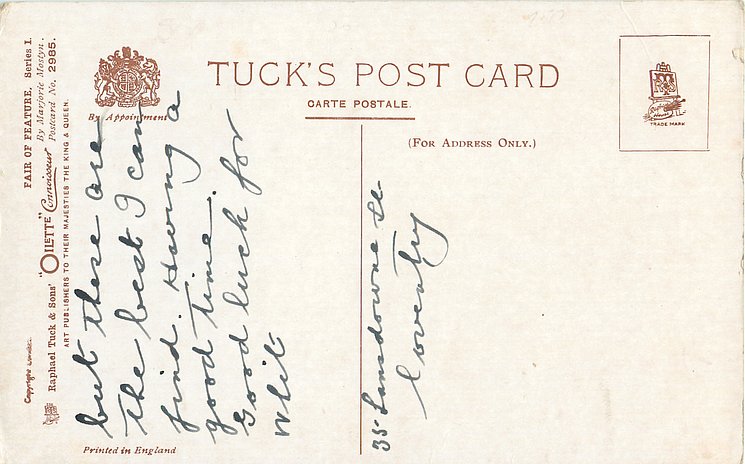 TUCK'S POST CARD
CARTE POSTALE.
(FOR ADDRESS ONLY.)
By Appointment
TRADE MARK
FAIR OF FEATURE. Series I.
By Marjorie Mostyn.
Raphael Tuck & Sons' "OILETTE" Connoisseur Postcard No. 2985.
ART PUBLISHERS TO THEIR MAJESTIES THE KING & QUEEN.
Copyright
Printed in England
but these are
the best I can
find. Having a
good time.
Good luck for
Whit
35 Lansdowne St.
Coventry